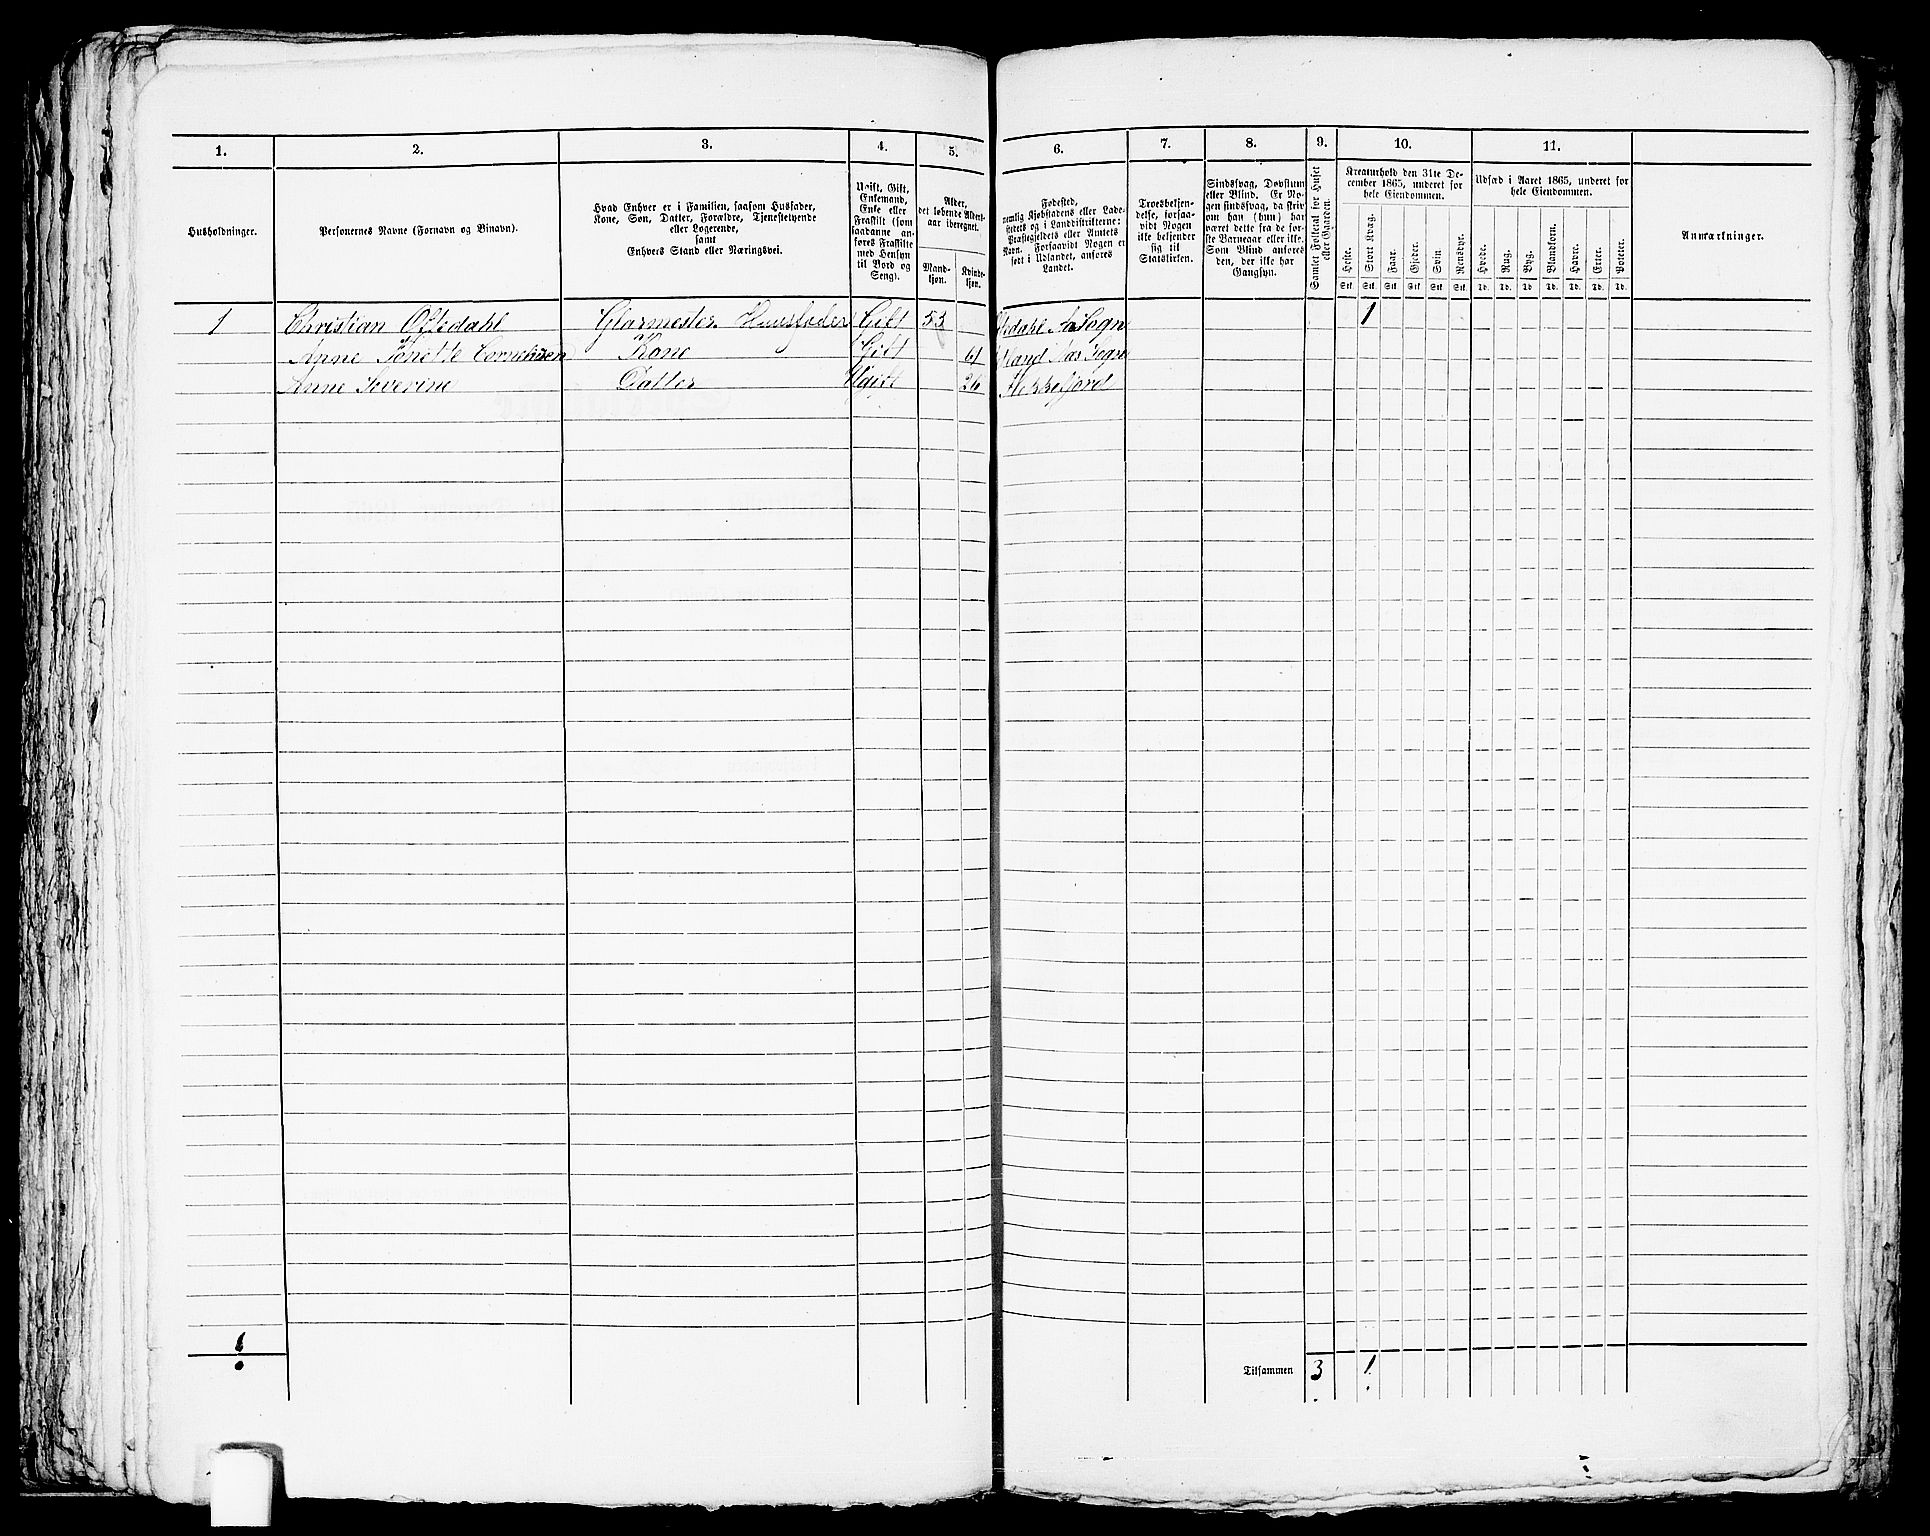 1. 2. 3. 4. 5. 6. 7. 8. 9. 10. 11.
Husholdninger.
Personernes Navne (Fornavn og Binavn).
Hvad Enhver er i Familien, saasom Husfader,
Kone, Søn, Datter, Forældre, Tjenestetyende
eller Logerende,
samt
Enhvers Stand eller Næringsvei.
Ugift, Gift,
Enkemand,
Enke eller
Fraskilt (som
saadanne an-
føres Fraskilte
med Hensyn
til Bord og
Seng).
Alder,
det løbende Alders-
aar iberegnet.
Mand-
kjøn.
Kvinde-
kjøn.
Fødested,
nemlig Kjøbstadens eller Lade-
stedets og i Landdistrikterne:
Præstegjeldets eller Amtets
Navn. Forsaavidt Nogen er
født i Udlandet, anføres
Landet.
Troesbekjen-
delse, forsaa-
vidt Nogen
ikke bekjender
sig til
Statskirken.
Sindssvag, Døvstum
eller Blind. Er No-
gen sindssvag, da skriv
om han (hun) har
været dette fra de før-
ste Barneaar eller ikke.
Som Blind anføres
den, der ikke har
Gangsyn.
Samlet Folketal for Huset
eller Gaarden.
Kreaturhold den 31te De-
cember 1865, underet for
hele Eiendommen.
Heste. Stort Kvæg. Faar. Gjeder. Svin. Rensdyr.
Stk. Stk. Stk. Stk. Stk. Stk.
Udsæd i Aaret 1865, underet for
hele Eiendommen.
Hvede. Rug. Byg. Blandkorn. Havre. Erter. Poteter.
Td. Td. Td. Td. Td. Td. Td.
Anmærkninger.
1 Christian Oftedahl Glarmester Huusfader Gift 53 1
Anne Tonette Cornelissen Kone Gift 61
Anne Severine Datter Ugift 26 Flekkefjord
1
Tilsammen 3 1